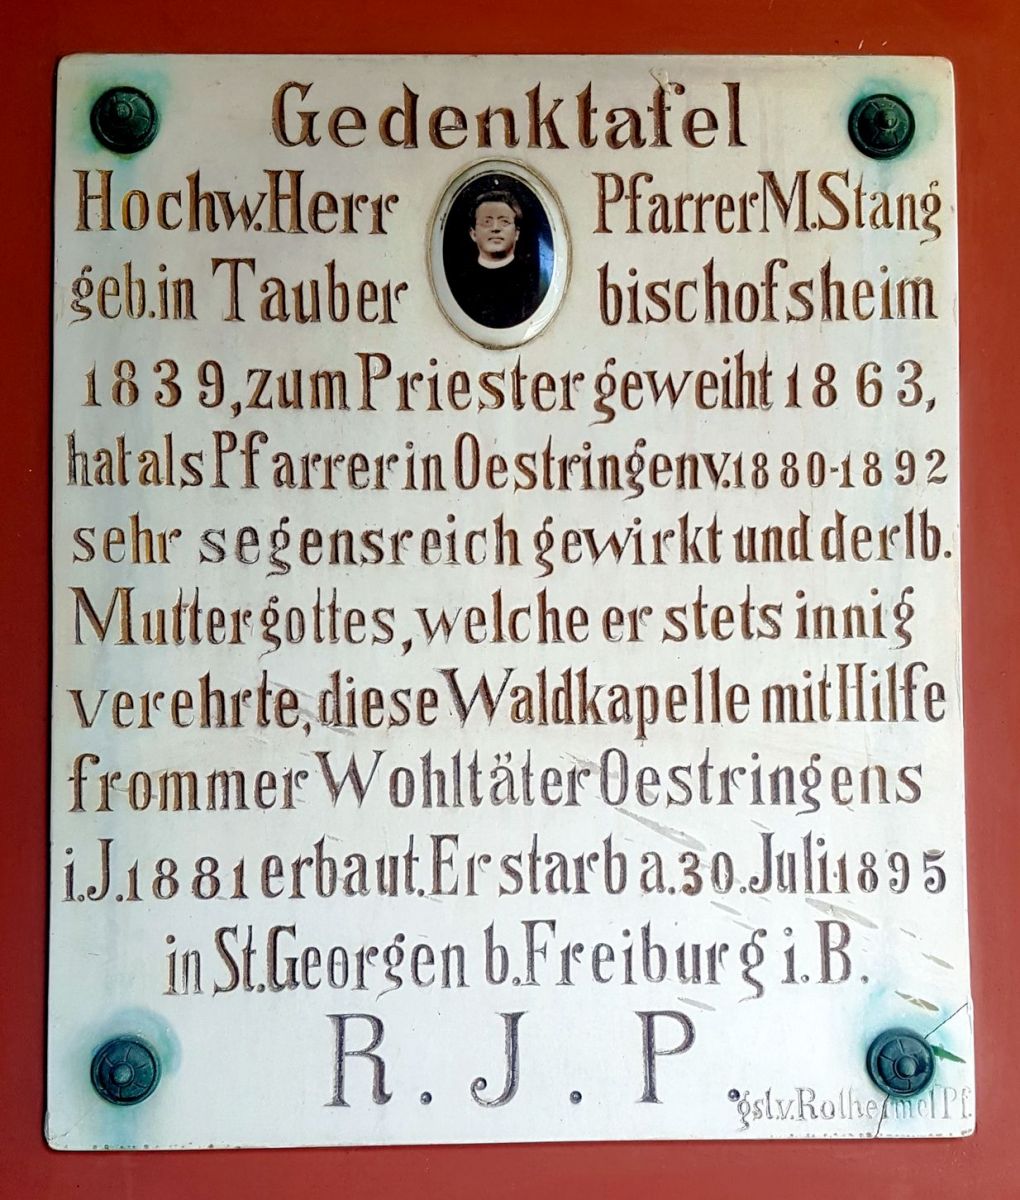 Gedenktafel
Hochw. Herr Pfarrer M. Stang
geb. in Tauber bischofsheim
1839, zum Priester geweiht 1863,
hat als Pfarrer in Oestringen v. 1880-1892
sehr segensreich gewirkt und der lb.
Muttergottes, welche er stets innig
verehrte, diese Waldkapelle mit Hilfe
frommer Wohltäter Oestringens
i. J. 1881 erbaut. Er starb a. 30. Juli 1895
in St. Georgen b. Freiburg i. B.
R. J. P.